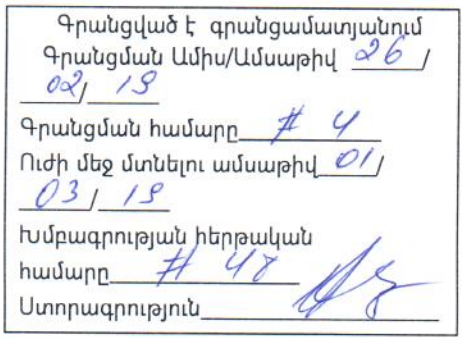 Գրանցված է գրանցամատյանում
Գրանցման Ամիս/Ամսաթիվ 26 /
02/ 19
Գրանցման համարը # 4
Ուժի մեջ մտնելու ամսաթիվ 01/
03 / 19
Խմբագրության հերթական
համարը # 48
Ստորագրություն